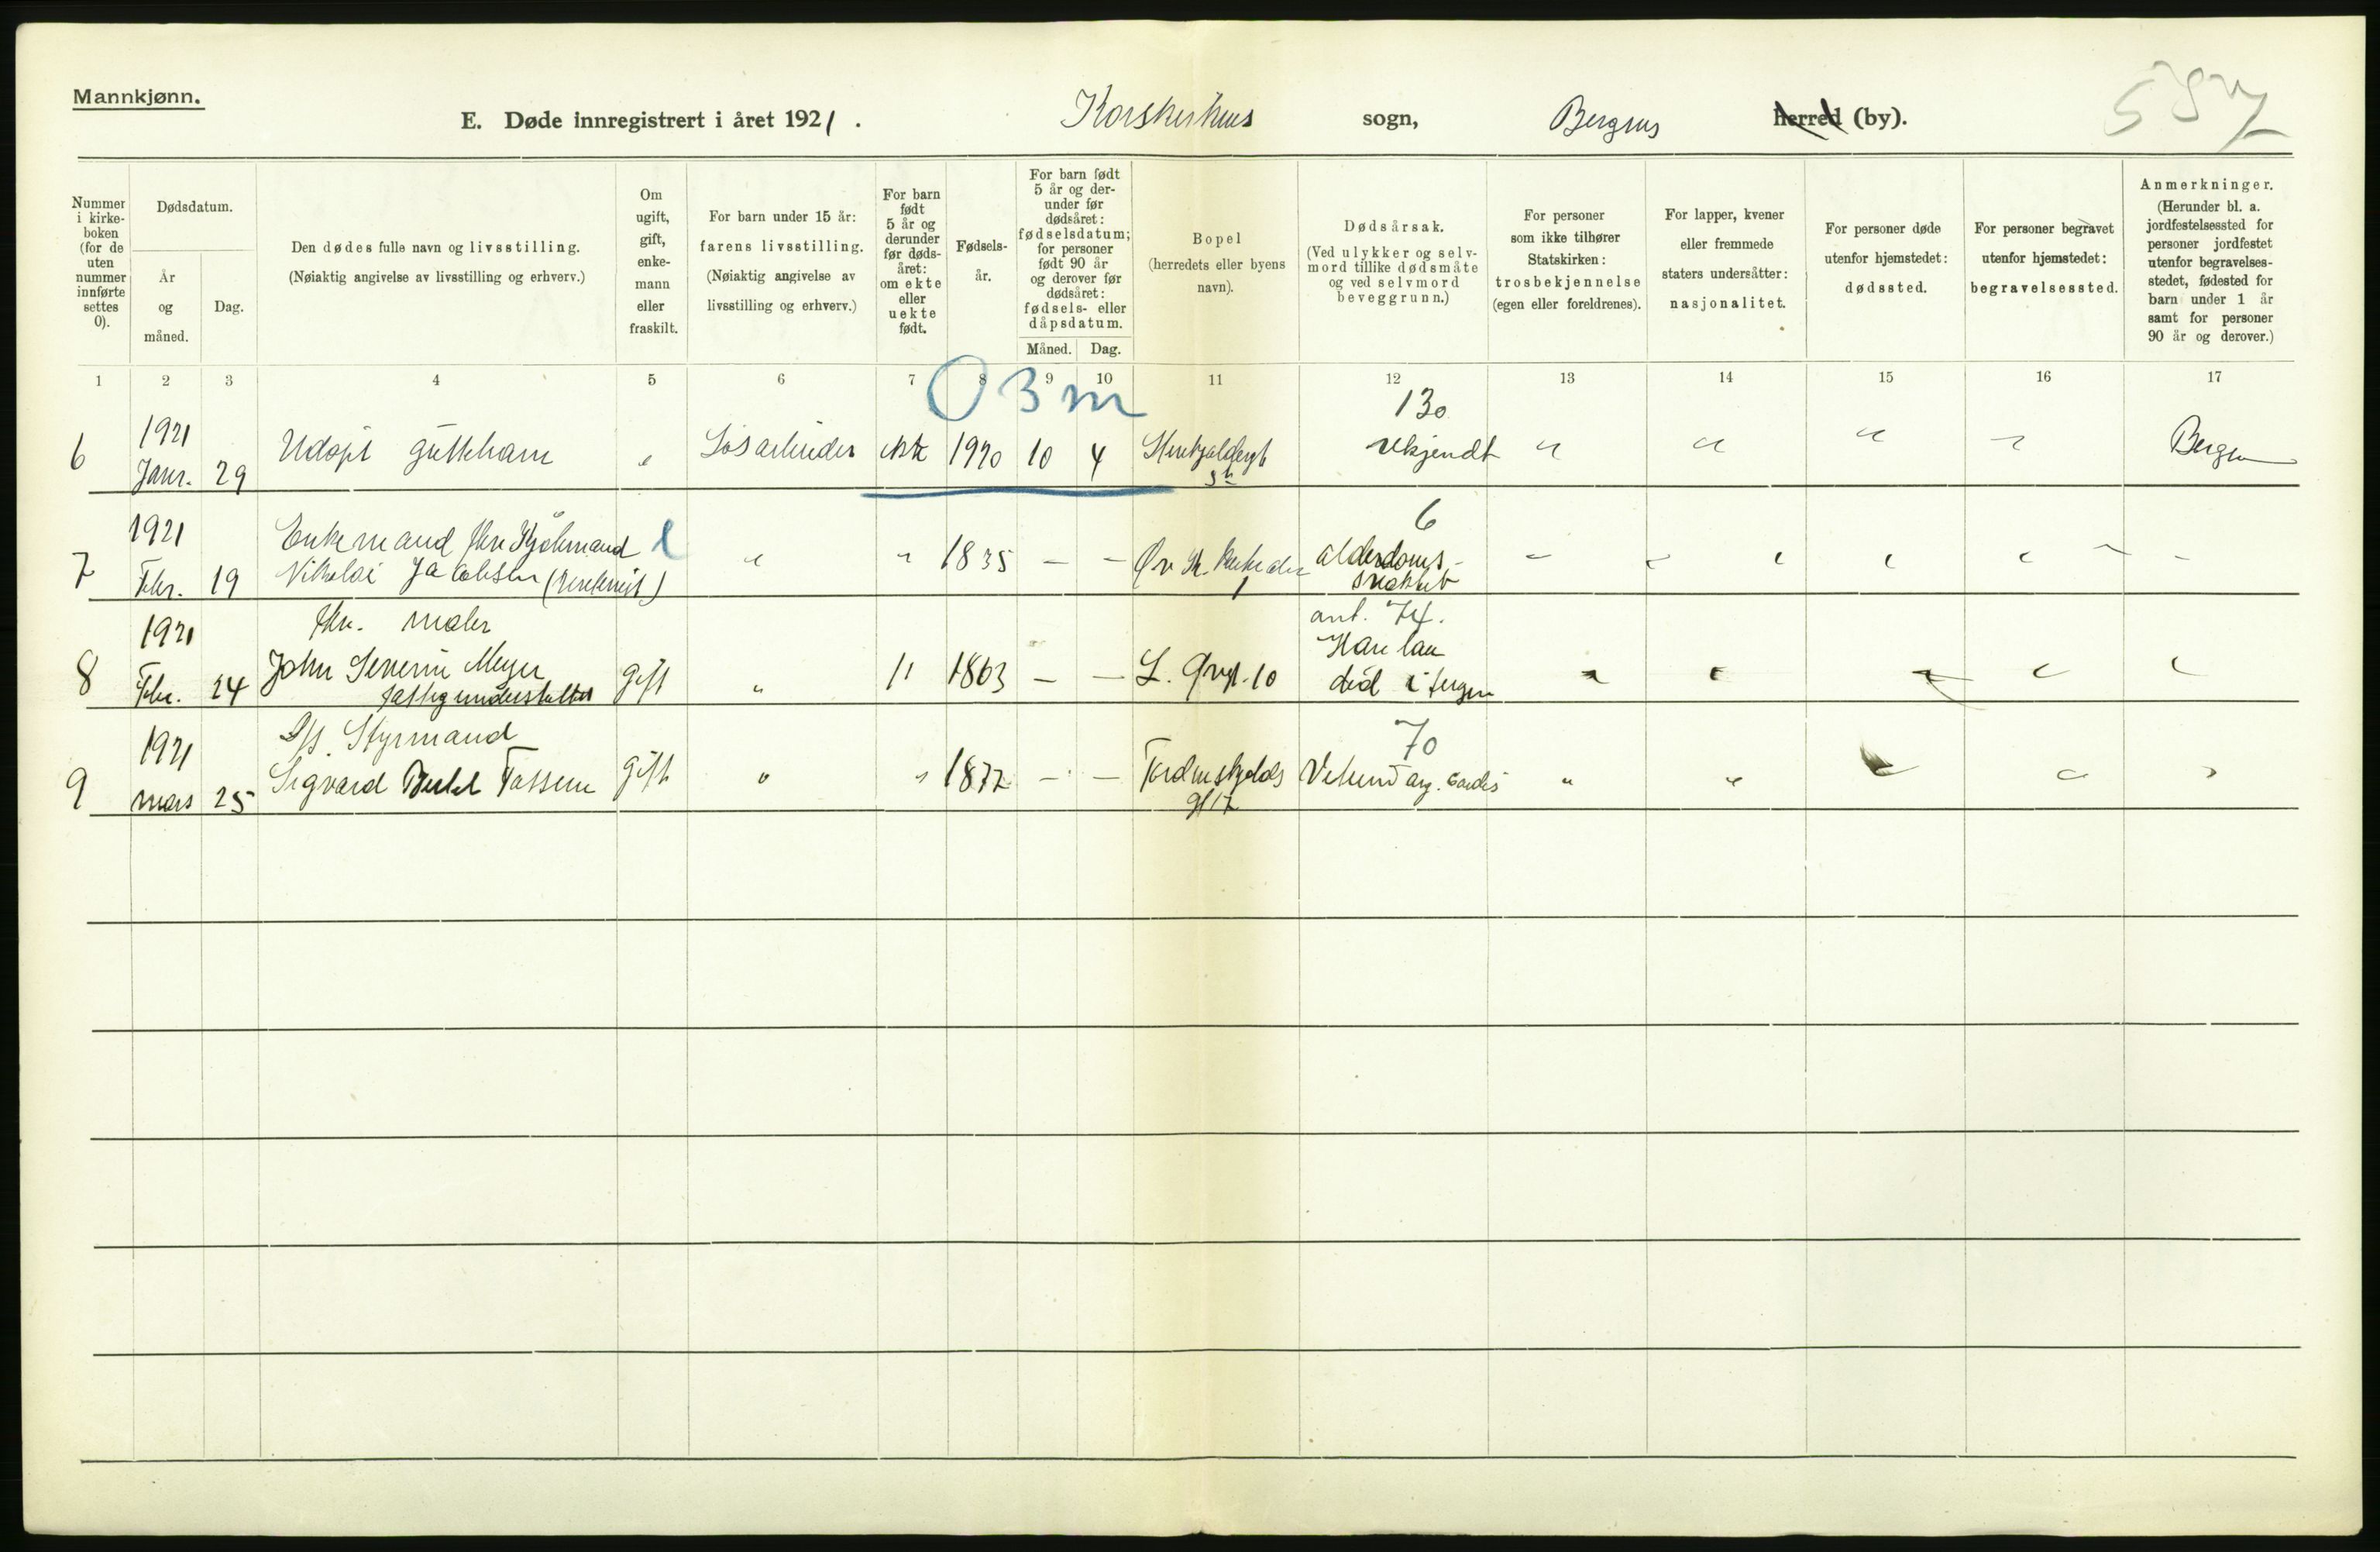 Mannkjønn.
E. Døde innregistrert i året 1921. Korskirkens sogn, Bergens herred (by).
587
Nummer i kirke-boken (for de uten nummer innførte settes 0).
Dødsdatum.
År og måned.
Dag.
Den dødes fulle navn og livsstilling.
(Nøiaktig angivelse av livsstilling og erhverv.)
Om ugift, gift, enke-mann eller fraskilt.
For barn under 15 år:
farens livsstilling.
(Nøiaktig angivelse av livsstilling og erhverv.)
For barn født 5 år og derunder før døds-året: om ekte eller uekte født.
Fødsels-år.
For barn født 5 år og der-under før dødsåret: fødselsdatum; for personer født 90 år og derover før dødsåret: fødsels- eller dåpsdatum.
Måned.
Dag.
Bopel
(herredets eller byens navn).
Dødsårsak.
(Ved ulykker og selv-mord tillike dødsmåte og ved selvmord beveggrunn.)
For personer som ikke tilhører Statskirken:
trosbekjennelse
(egen eller foreldrenes).
For lapper, kvener eller fremmede staters undersåtter:
nasjonalitet.
For personer døde utenfor hjemstedet:
dødssted.
For personer begravet utenfor hjemstedet:
begravelsessted.
Anmerkninger.
(Herunder bl. a. jordfestelsessted for personer jordfestet utenfor begravelses-stedet, fødested for barn under 1 år samt for personer 90 år og derover.)
1 2 3 4 5 6 7 8 9 10 11 12 13 14 15 16 17
0 3 m
130
6 1921 Janr. 29 Udøpt guttebarn " Løsarbeider ekte 1920 10 4 ukjendt " " " " Bergen
6
7 1921 Febr. 19 Enkemand fhv Kjøbmand
Nikolai Jacobsen
" " 1835 — — Øv 1 alderdoms-
svakhet
ant. 74.
8 1921 Febr. 24 fhv. maler
John Severin Meyer
fattigunderstøttet
gift " " 1863 — — L. 10
død i sengen
70
9 1921 mars 25 Styrmand
Sigvard gift " " 1877 — — Tordenskjolds
gt 17